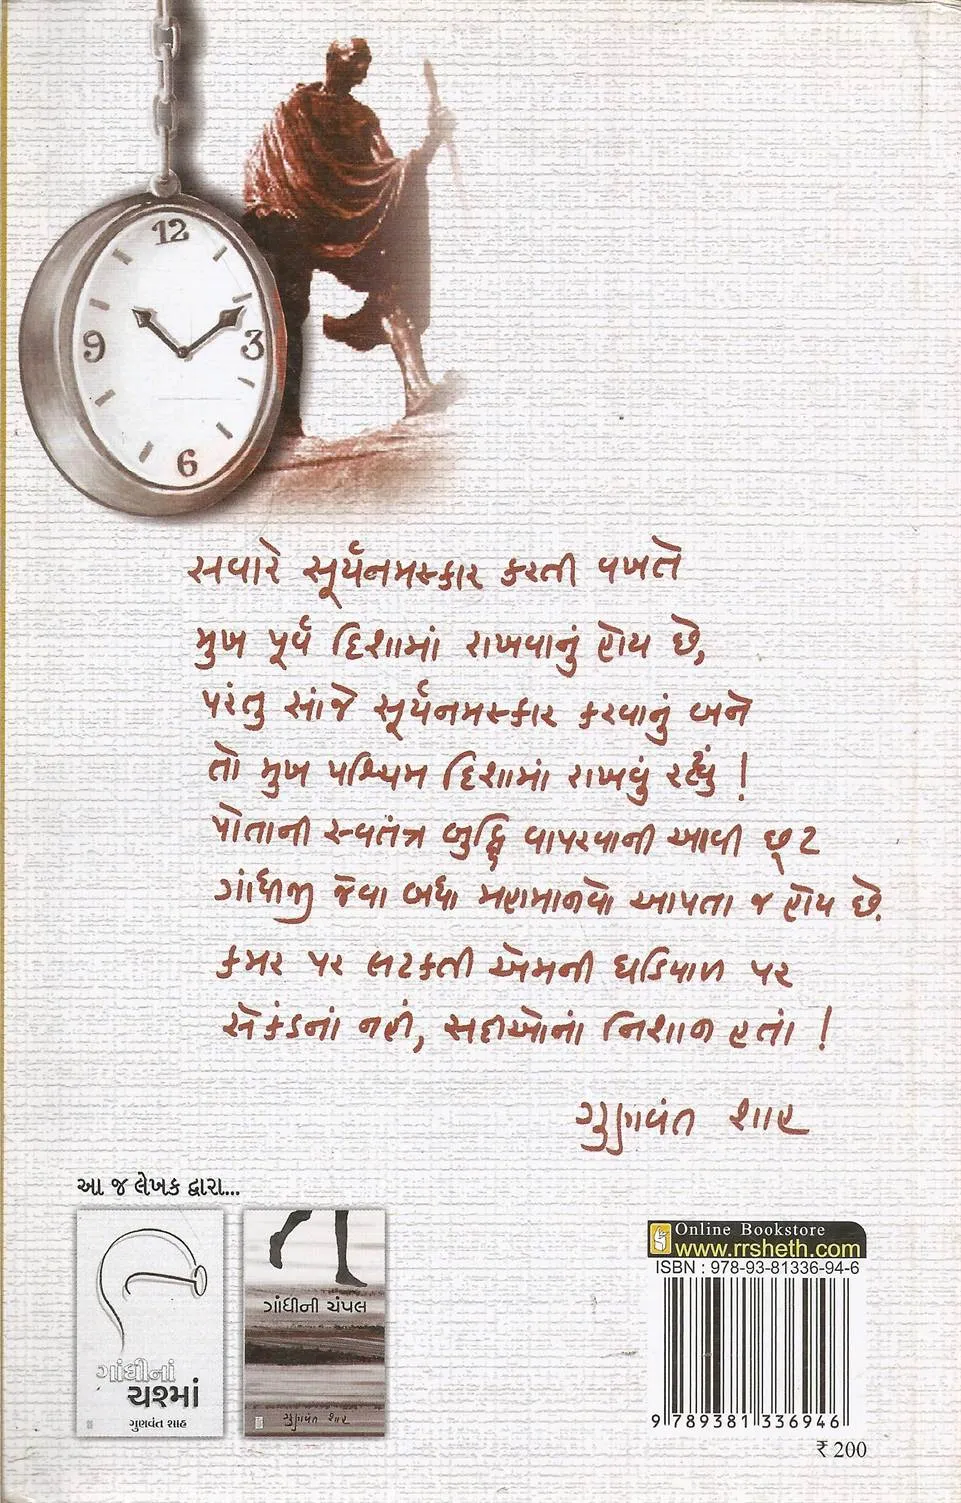 12
9
3
6
સવારે સૂર્યનમસ્કાર કરતી વખતે
મુખ પૂર્વ દિશામાં રાખવાનું હોય છે,
પરંતુ સાંજે સૂર્યનમસ્કાર કરવાનું બને
તો મુખ પશ્ચિમ દિશામાં રાખવું રહ્યું !
પોતાની સ્વતંત્ર બુદ્ધિ વાપરવાની આવી છૂટ
ગાંધીજી જેવા બધા મહામાનવો આપતા જ હોય છે.
કમર પર લટકતી એમની ઘડિયાળ પર
સેકંડનાં નહીં, સદીઓનાં નિશાન હતાં !
ગુણવંત શાહ
આ જ લેખક દ્વારા...
ગાંધીનાં
ચશ્માં
ગુણવંત શાહ
ગાંધીની ચંપલ
ગુણવંત શાહ
Online Bookstore
www.rrsheth.com
ISBN : 978-93-81336-94-6
9 789381 336946
₹ 200